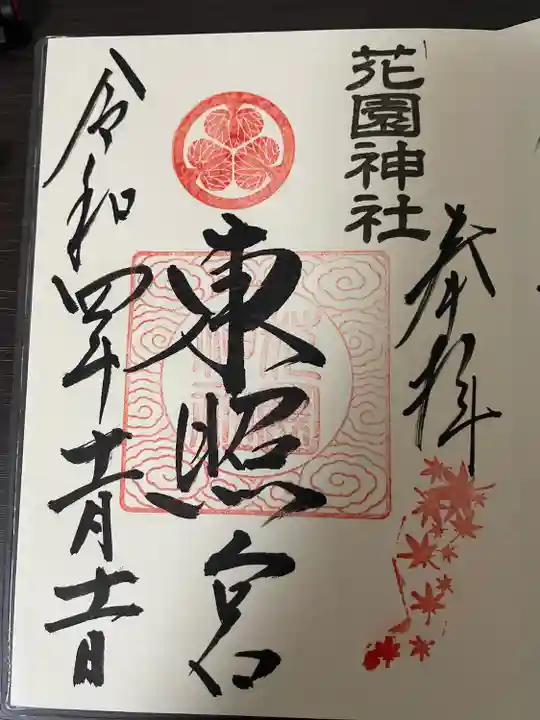 花園神社
奉拝
東照宮
令和四年十一月十一日